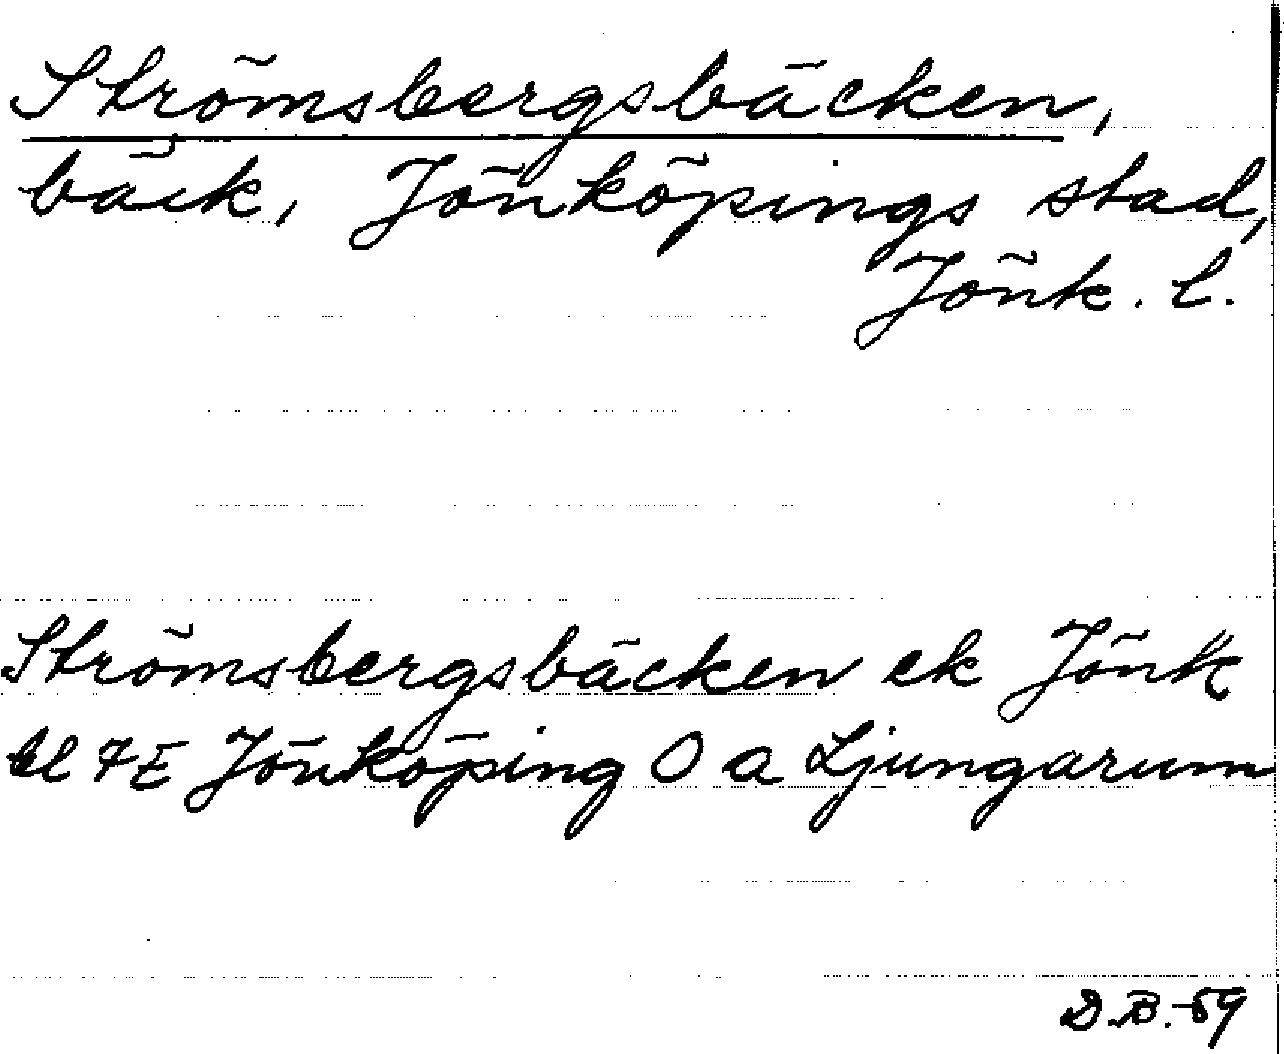 Strömsbergsbäcken,
bäck, Jönköpings stad,
Jönk. l.
Strömsbergsbäcken ek Jönk
bl 7E Jönköping O a Ljungarum
D.B.-59